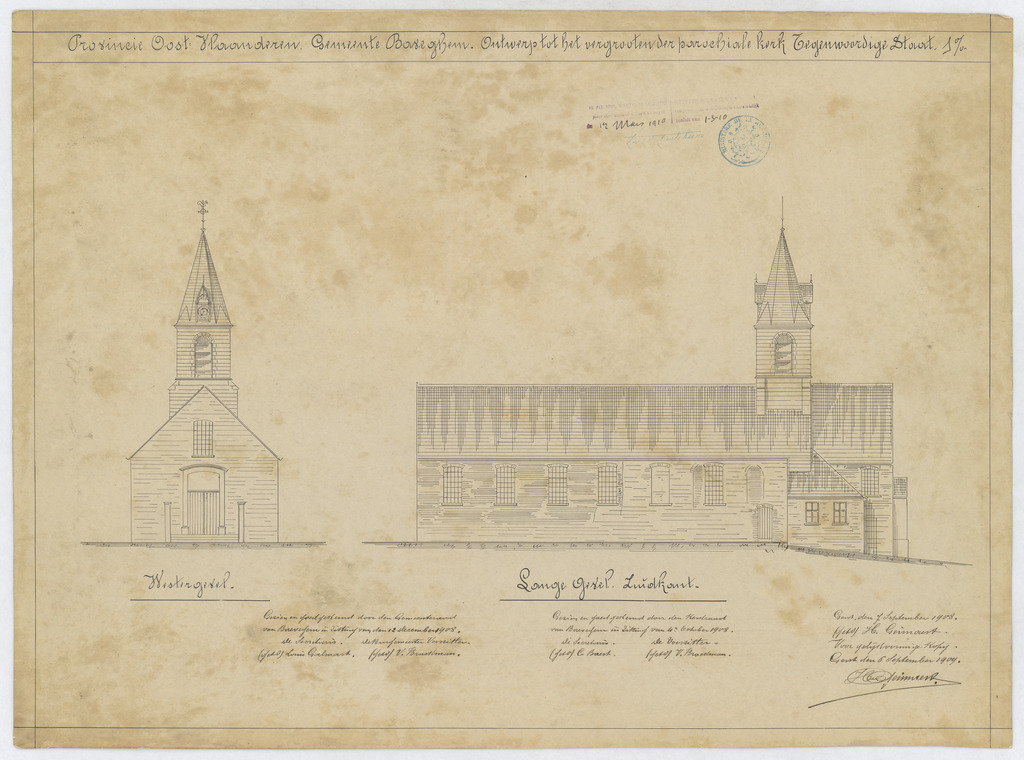 Provincie Oost Vlaanderen. Gemeente Baveghem. Ontwerp tot het vergrooten der parochiale kerk Tegenwoordige Staat. 1%
12 Mars 1910 1-5-10
Westergevel.
Lange Gevel. Zuidkant.
Gezien en goedgekeurd door den Gemeenteraad
van Baveghem in zitting van den 12 december 1908.
de Secretaris. de Burgemeester Voorzitter.
(get) Louis (get) V.
Gezien en goedgekeurd door den Kerkraad
van Baveghem in zitting van 4 October 1908.
de Secretaris. de Voorzitter.
(get) C. Baert. (get) V.
Gent, den 7 September 1908.
(get) H. Geirnaert.
Voor gelijkvormige Kopij.
Gent den 5 September 1909.
H. Geirnaert.